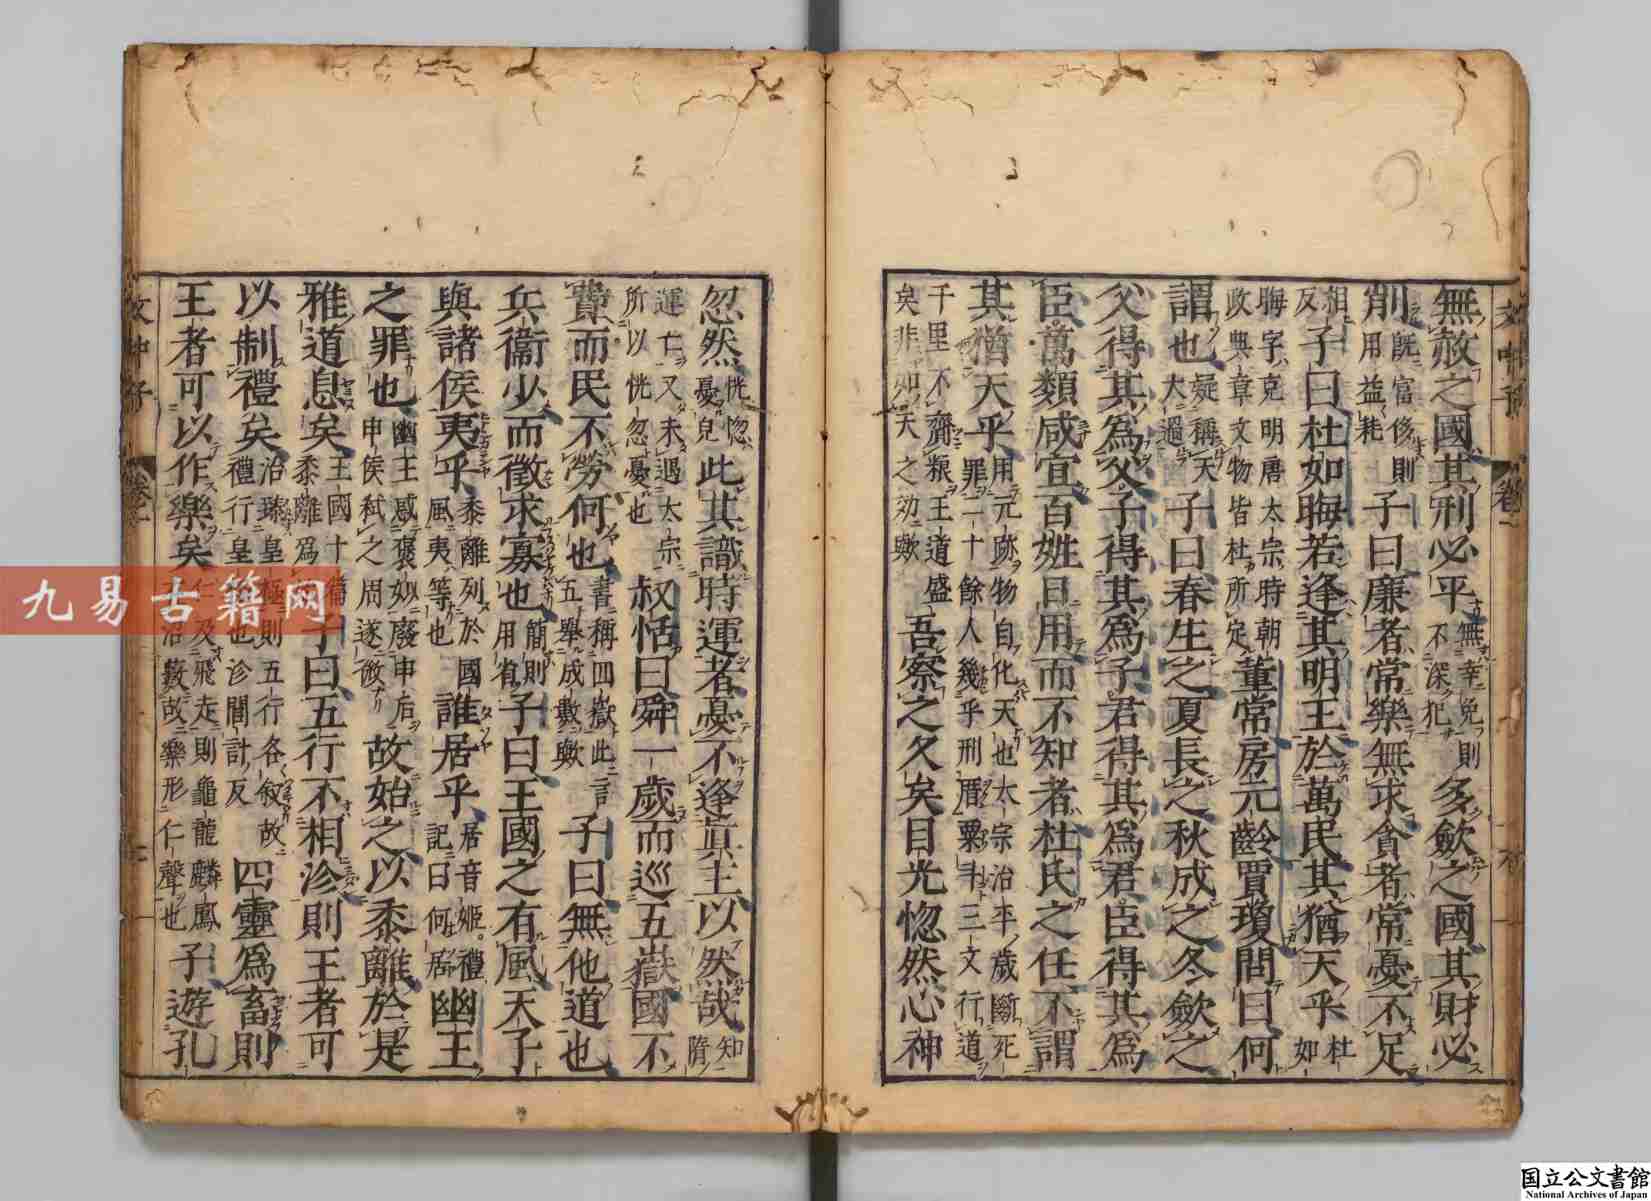 無赦之國其刑必平無幸免則不深犯多斂之國其財必
削既富侈則用益耗子曰廉者常樂無求貪者常憂不足
子曰杜如晦若逢其明王於萬民其猶天乎杜如
晦字克明唐太宗時朝政典章文物皆杜所定董常房元齡賈瓊問曰何
謂也疑稱天大過子曰春生之夏長之秋成之冬斂之
父得其爲父子得其爲子君得其爲君臣得其爲
臣萬類咸宜百姓日用而不知者杜氏之任不謂
其猶天乎用元跡物自化天也太宗治平歲斷死罪二十餘人幾乎刑厝粟斗三文行道
千里不齎粮王道盛矣非如天之効歟吾察之久矣目光惚然心神
忽然恍惚憂皃此其識時運者憂不逢眞主以然哉知隋
運亡又未遇太宗所以恍忽憂也叔恬曰舜一歲而巡五嶽國不
費而民不勞何也書稱四嶽此言五舉成數歟子曰無他道也
兵衞少而徵求寡也簡則用省子曰王國之有風天子
與諸侯夷乎黍離列於國風夷等也誰居乎居音姬禮記曰何居幽王
之罪也幽王惑褒姒廢申后申侯弒之周遂微故始之以黍離於是
雅道息矣子曰五行不相沴則王者可
以制禮矣四靈爲畜則
王者可以作樂矣子遊孔
文中子
卷一
九易古籍网
国立公文書館
National Archives of Japan